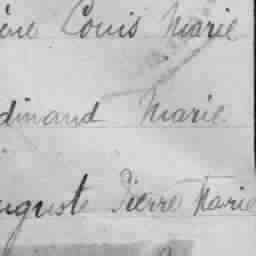 ène Louis Marie
dinand Marie
uguste Pierre Marie